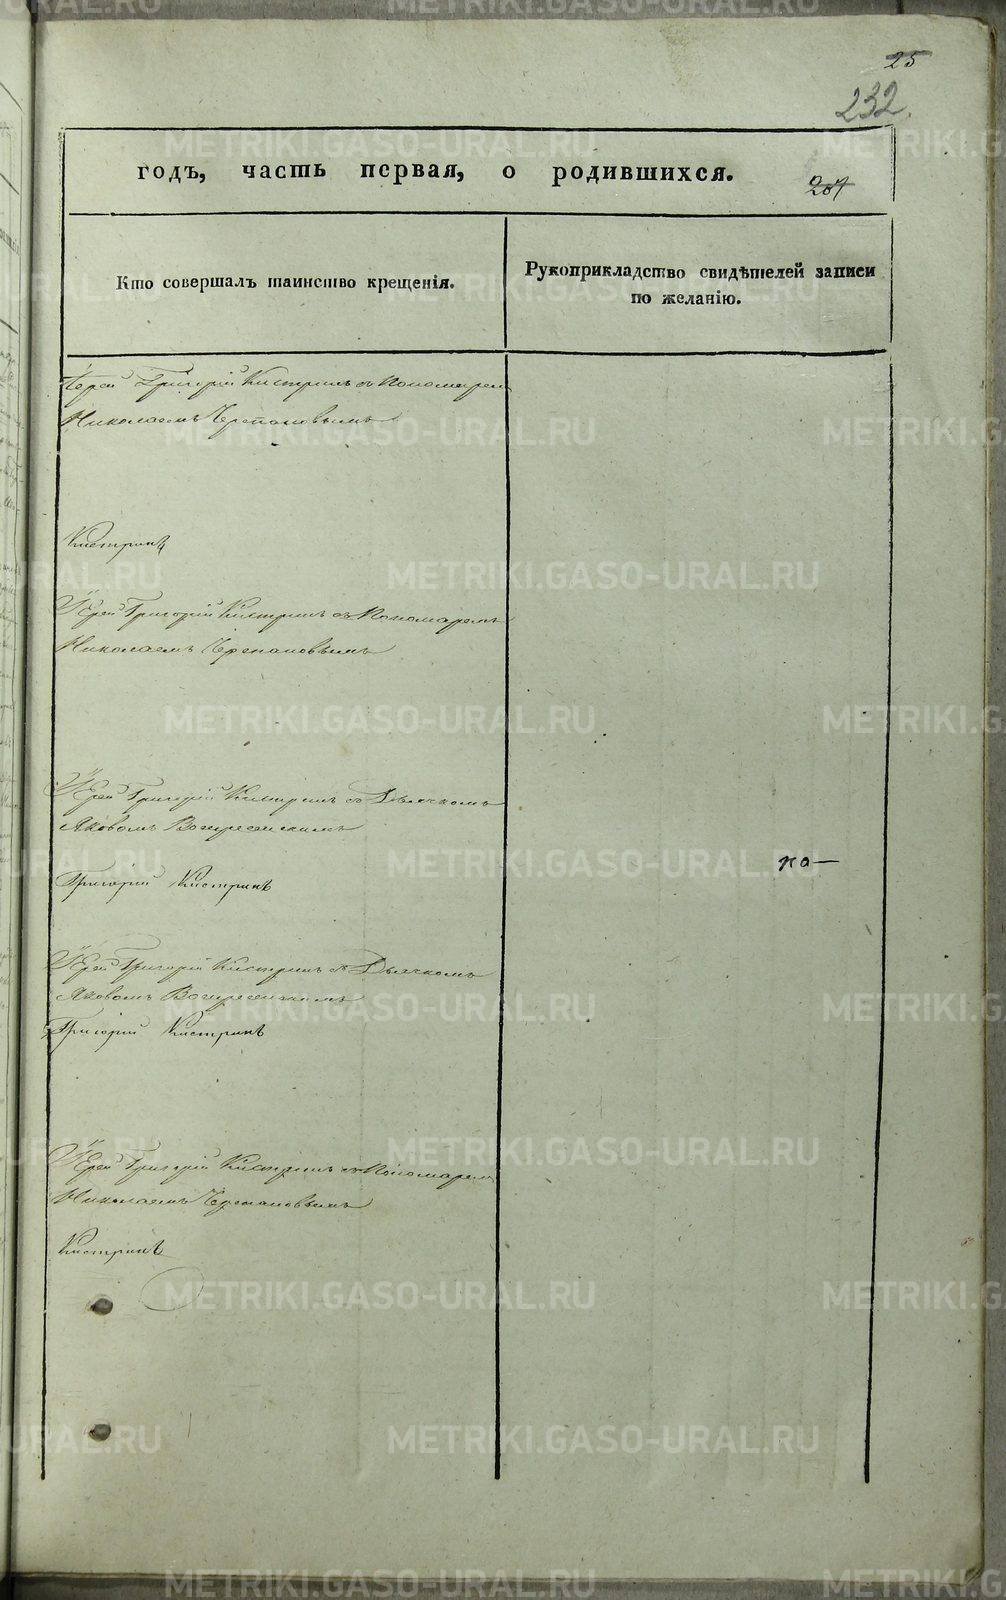 25
232.
годъ, часть первая, о родившихся.
207
Кто совершалъ таинство крещенія.
Рукоприкладство свидѣтелей записи
по желанію.
Іерей Григорій Кистринъ съ Пономарем
Николаемъ Черепановымъ
Кистринъ
Іерей Григорій Кистринъ съ Пономаремъ
Николаемъ Черепановымъ
Іерей Григорій Кистринъ съ Дьячкомъ
Яковомъ Воскресенскимъ
по
Григорій Кистринъ
Іерей Григорій Кистринъ съ Дьячкомъ
Яковомъ Воскресенскимъ
Григорій Кистринъ
Іерей Григорій Кистринъ съ Пономарем
Николаемъ Черепановымъ
Кистринъ
METRIKI.GASO-URAL.RU